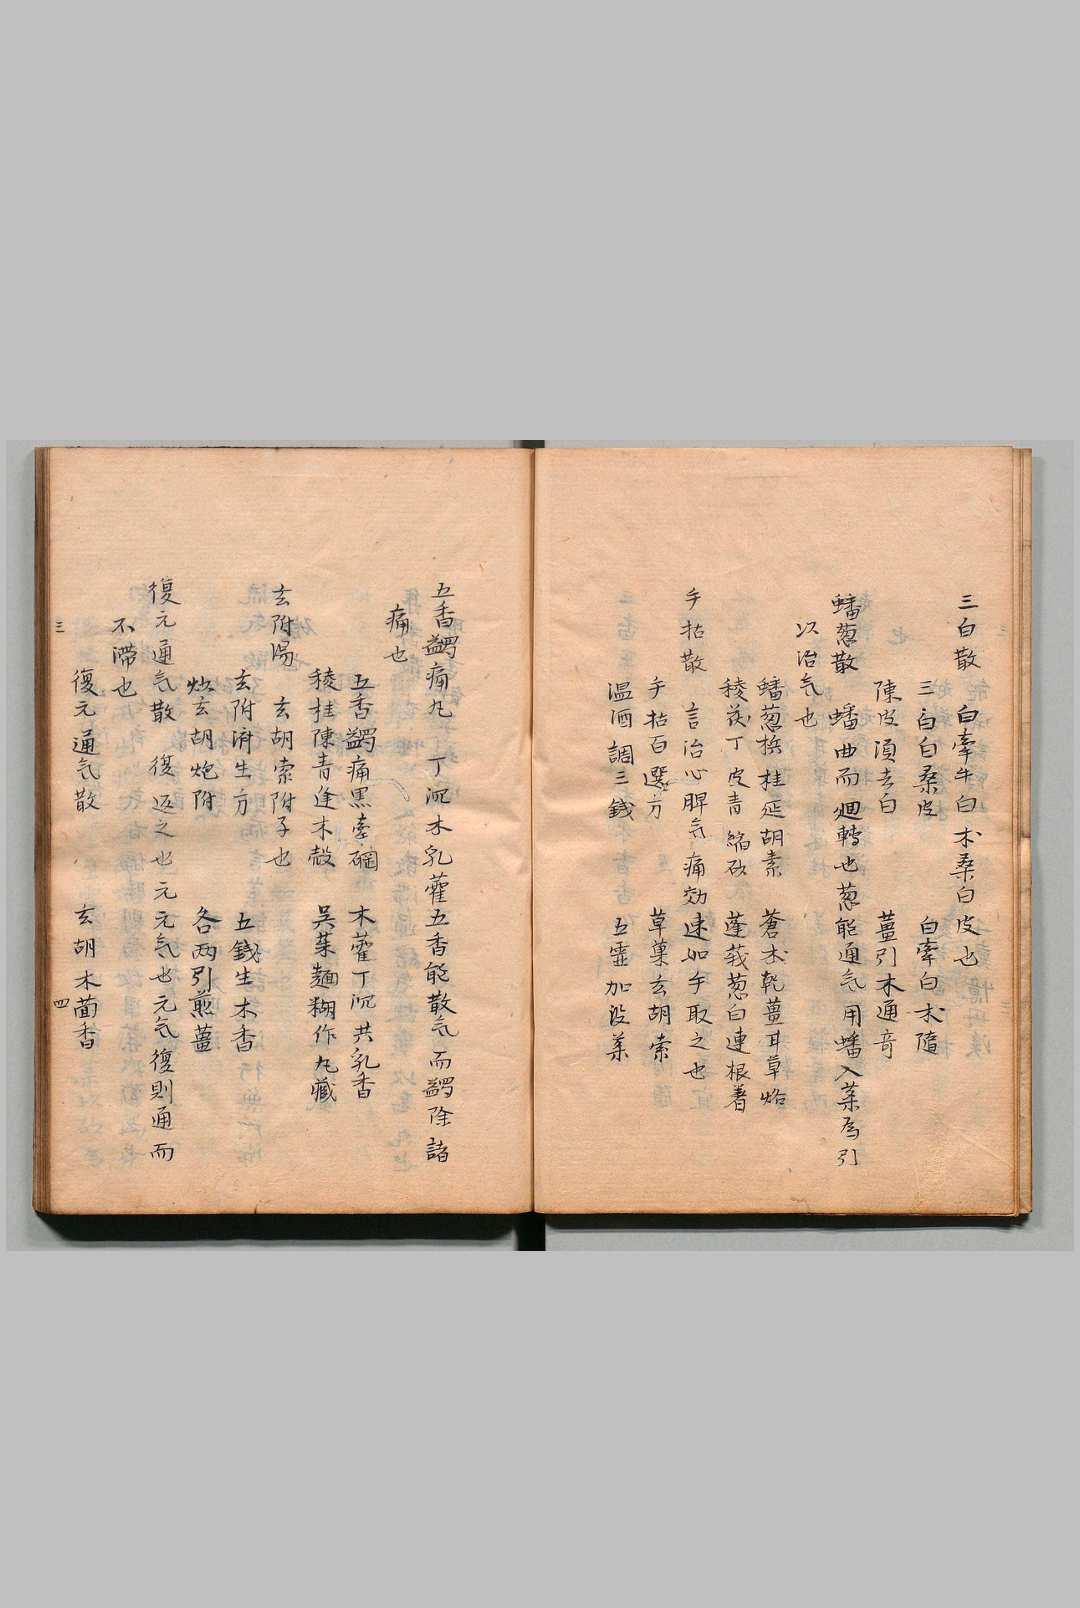 三白散　白牽牛白木桑白皮也
三白白桑皮　白牽白木隨
陳皮須去白　薑引木通奇
蟠葱散　蟠曲而廻轉也葱能通气用蟠入薬為引
以治气也
蟠葱梹桂延胡素　蒼木乾薑耳草烙
稜茂丁皮青縮砂　蓬莪葱白連根着
手拈散　言治心脾气痛効速如手取之也
手拈百選方　草菓玄胡索
温酒調三錢　五霊加没薬
五香蠲痛丸　丁沉木乳藿五香能散气而蠲除諸
痛也
五香蠲痛黒牽　木藿丁沉共乳香
稜桂陳青逢木殻　呉茱麺糊作丸蔵
玄附湯　玄胡索附子也
玄附済生方　五錢生木香
玄胡炮附　各両引煎薑
復元通气散　復返之也元元気也元气復則通而
不滞也
復元通气散　玄胡木茴香
三
四